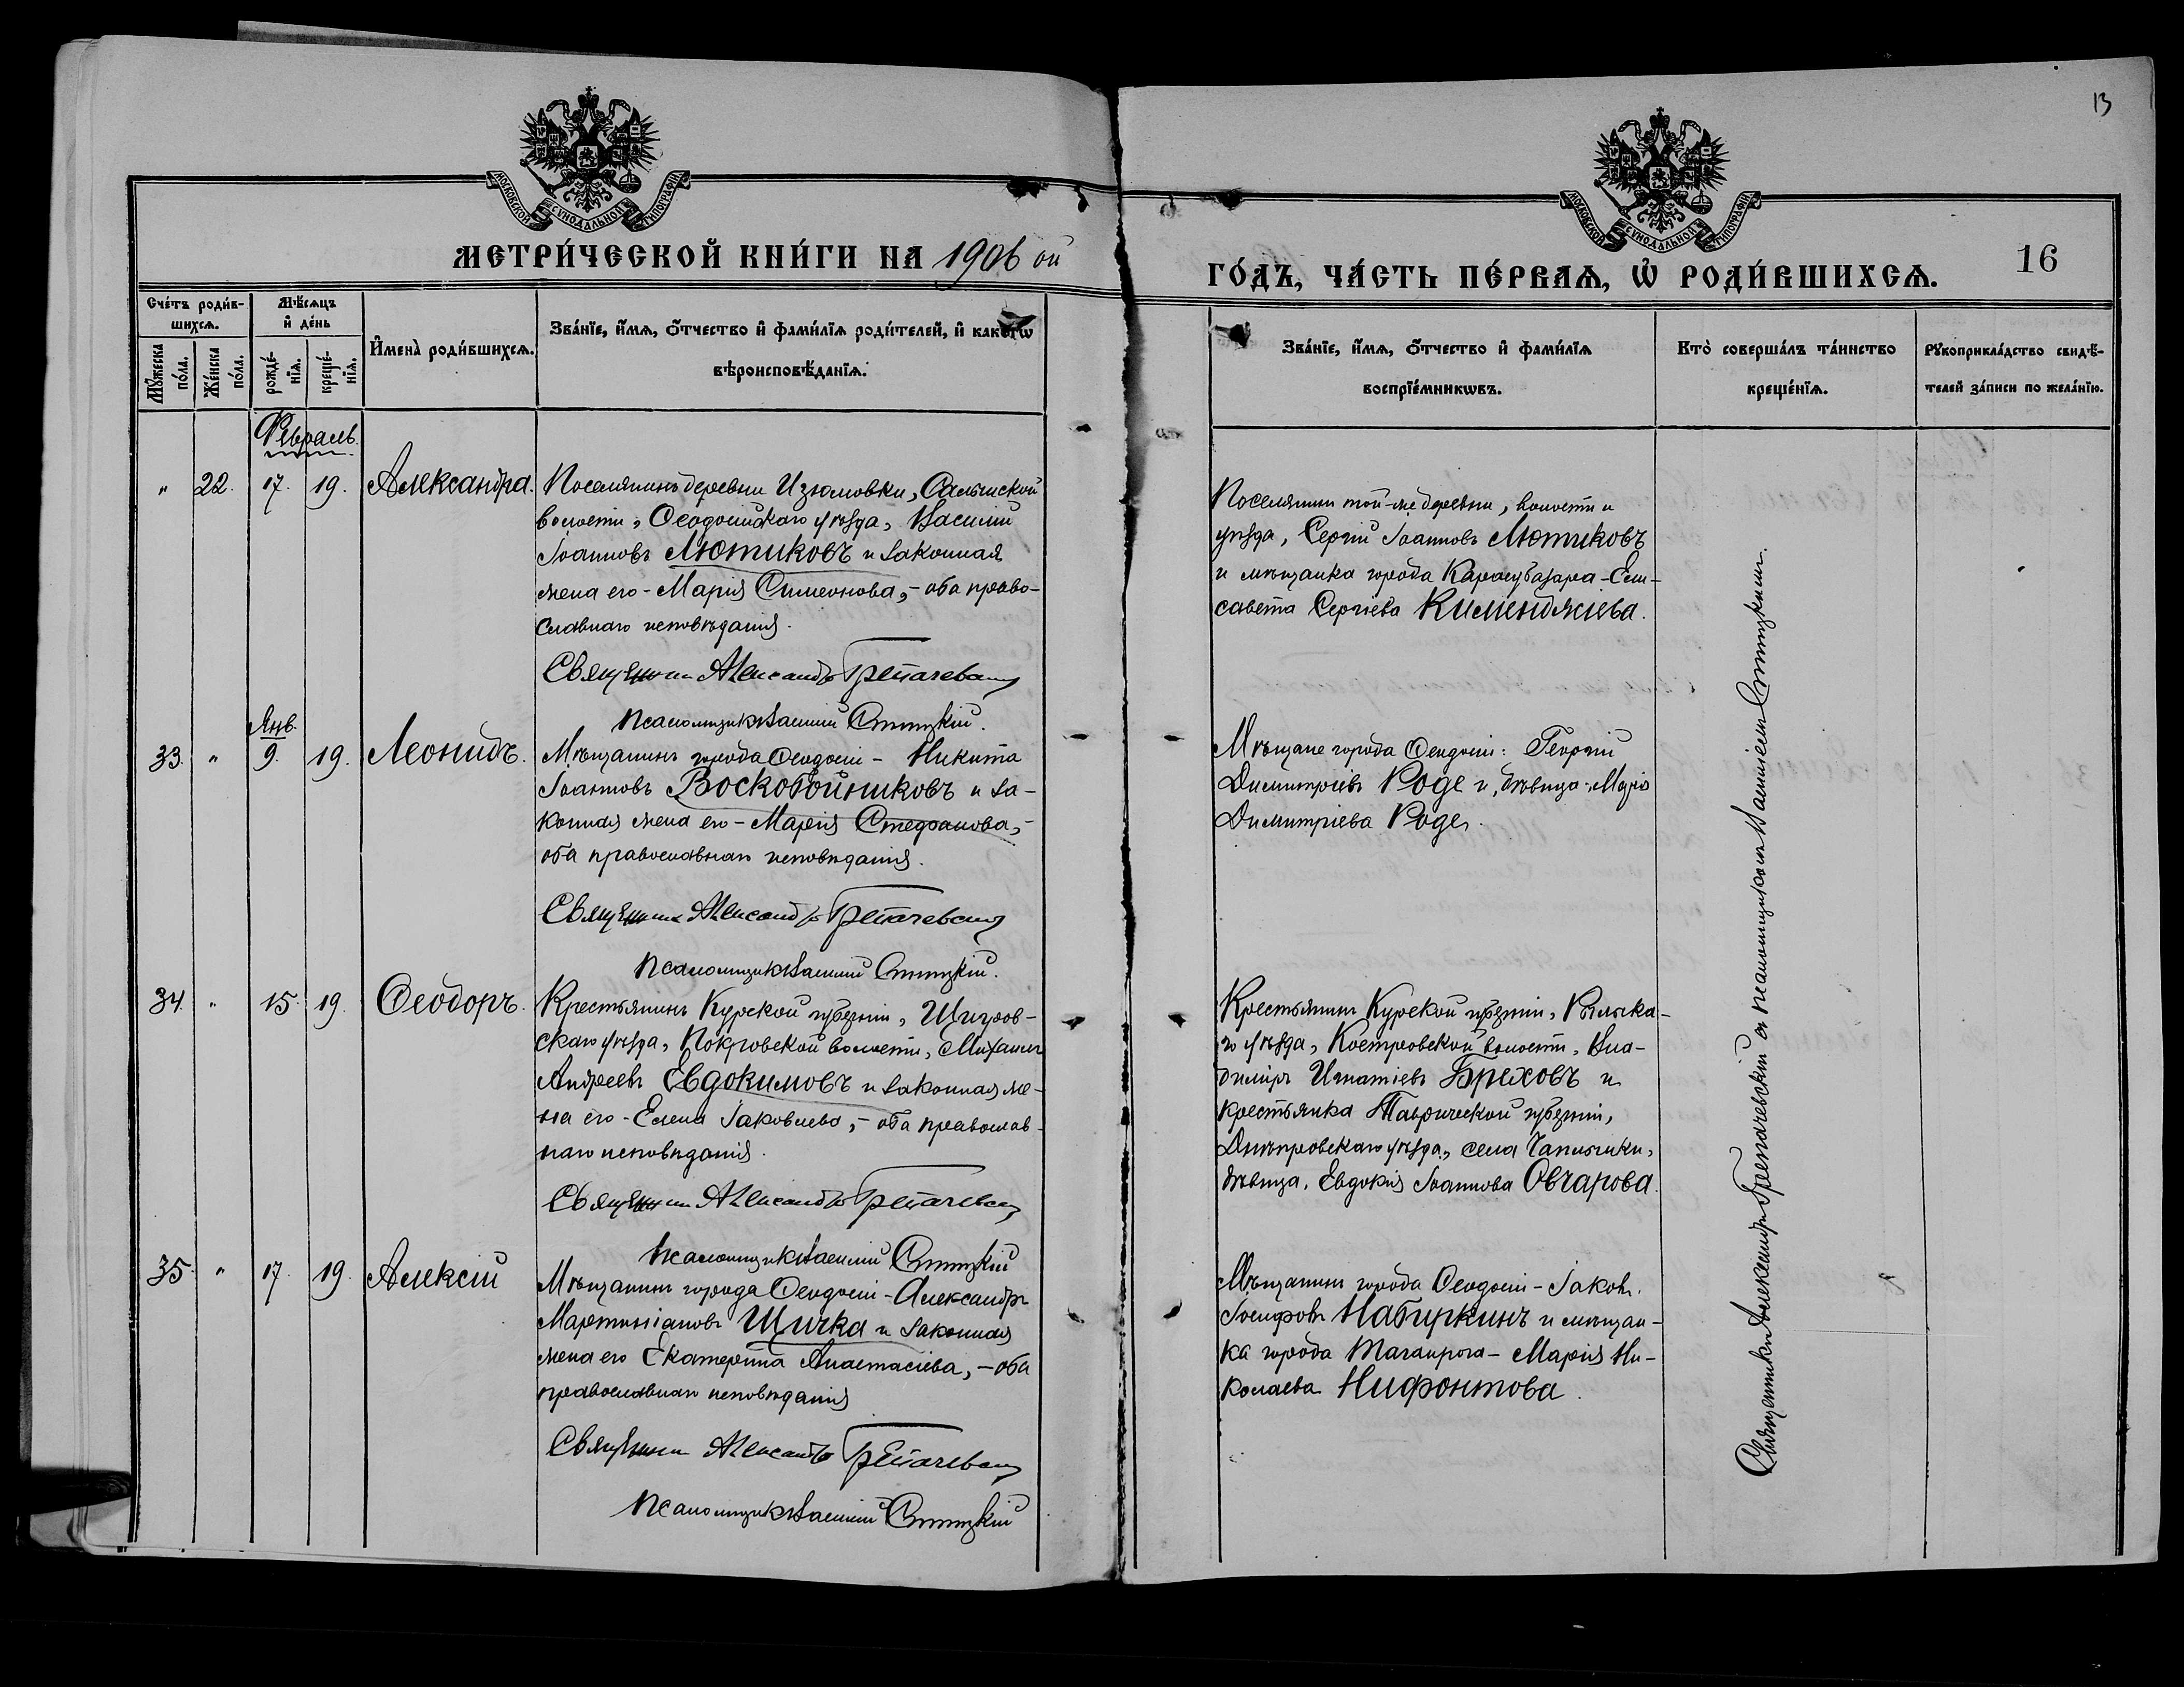 13
МОСКОВСКОЙ СѴНОДАЛЬНОЙ ТИПОГРАФІИ
МОСКОВСКОЙ СѴНОДАЛЬНОЙ ТИПОГРАФІИ
МЕТРИ́ЧЕСКОЙ КНИ́ГИ НА 1906 ой
ГО́ДЪ, ЧА́СТЬ ПЕ́РВАѦ, Ѡ҆ РОДИ́ВШИХСѦ.
16
Сче́тъ роди́в-
шихсѧ.
Мѣ́сѧцъ
и҆ де́нь
Мꙋ́жеска
по́ла.
Же́нска
по́ла.
рожде́-
нїѧ.
креще́-
нїѧ.
И҆мена̀ роди́вшихсѧ.
Зва́нїе, и҆́мѧ, ѻ҆́тчество и҆ фами́лїѧ роди́телей, и҆ како́гѡ
вѣроисповѣ́данїѧ.
Зва́нїе, и҆́мѧ, ѻ҆́тчество и҆ фами́лїѧ
воспрїе́мникѡвъ.
Кто̀ соверша́лъ та́инство
креще́нїѧ.
Рꙋкоприкла́дство свидѣ́-
телей за́писи по жела́нїю.
Февраль.
" 22. 17. 19. Александра.
Поселянинъ деревни Изюмовки, Салынской
волости, Ѳеодосійскаго уѣзда, Василій
Іоанновъ Лютиковъ и законная
жена его - Марія Симеонова, - оба право-
славнаго исповѣданія.
Священникъ Александръ Грепачевскій
Псаломщикъ Василій Ступицкій.
Поселянинъ той-же деревни, волости и
уѣзда, Сергій Іоанновъ Лютиковъ
и мѣщанка города Карасубазара - Ели-
савета Сергіева Килинджіева.
Янв.
33. " 9. 19. Леонидъ.
Мѣщанинъ города Ѳеодосіи - Никита
Іоанновъ Воскобойниковъ и за-
конная жена его - Марія Стефанова, -
оба православнаго исповѣданія.
Священникъ Александръ Грепачевскій
Псаломщикъ Василій Ступицкій.
Мѣщане города Ѳеодосіи: Георгій
Димитріевъ Роде и, дѣвица - Марія
Димитріева Роде.
34. " 15. 19. Ѳеодоръ.
Крестьянинъ Курской губерніи, Щигров-
скаго уѣзда, Покровской волости, Михаилъ
Андреевъ Евдокимовъ и законная же-
на его - Елена Іаковлева, - оба православ-
наго исповѣданія.
Священникъ Александръ Грепачевскій
Псаломщикъ Василій Ступицкій
Крестьянинъ Курской губерніи, Рыльска-
го уѣзда, Костровской волости, Вла-
диміръ Игнатіевъ Бреховъ и
крестьянка Таврической губерніи,
Днѣпровскаго уѣзда, села Чаплинки,
дѣвица, Евдокія Іоаннова Овчарова.
35. " 17. 19. Алексій
Мѣщанинъ города Ѳеодосіи - Александръ
Мартиніановъ Щичка и законная
жена его Екатерина Анастасіева, - оба
православнаго исповѣданія
Священникъ Александръ Грепачевскій
Псаломщикъ Василій Ступицкій
Мѣщанинъ города Ѳеодосіи - Іаковъ.
Іосифовъ Набиркинъ и мѣщан-
ка города Таганрога - Марія Ни-
колаева Нифонтова.
Священникъ Александръ Грепачевскій съ псаломщикомъ Василіемъ Ступицкимъ.